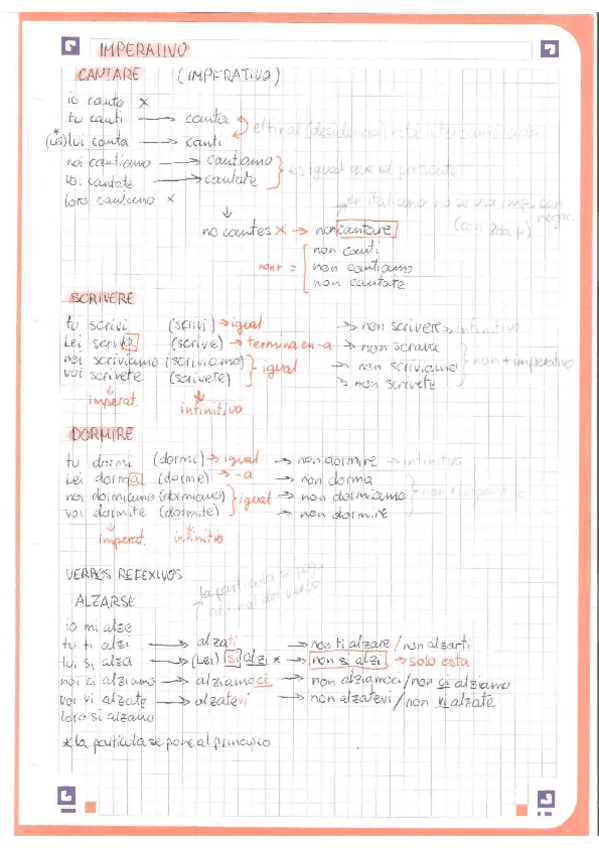 IMPERATIVO
CANTARE (IMPERATIVO)
io canto x
tu canti → canta
el final (desidencia) está intercambiada
(Lei) lui canta → canti
noi cantiamo → cantiamo
es igual que el presente
voi cantate → cantate
loro cantano x
en italiano no se usa imp. con negac.
(con 2da p)
no cantes x → non cantare
non canti
non + = non cantiamo
non cantate
SCRIVERE
tu scrivi (scrivi) → igual → non scrivere → infinitivo
Lei scriva (scrive) → termina en -a → non scrava
noi scriviamo (scriviamo) igual → non scriviamo non + imperativo
voi scrivete (scrivete) → non scrivete
imperat. infinitivo
DORMIRE
tu dormi (dormi) → igual → non dormire → infinitivo
Lei dorma (dorme) → -a → non dorma
noi dormiamo (dormiamo) igual → non dormiamo non + imperativo
voi dormite (dormite) → non dormire
imperat. infinitio
VERBOS REFEXIVOS
la particula se pone
al final del verbo
ALZARSE
io mi alzo
tu ti alzi → alzati → non ti alzare / non alzarti
lui si alza → (Lei) si alzi * → non si alzi → solo esta
noi ci alziamo → alziamoci → non alziamoci / non ci alziamo
voi vi alzate → alzatevi → non alzatevi / non vi alzate
loro si alzano
* la particula se pone al principio